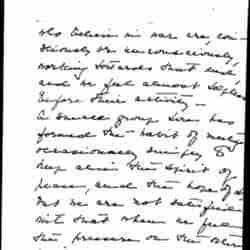 who believe in war are, con-
sciously or unconsciously,
working towards that end
and we feel almost helpless
before their activity —
A small group here has
formed the habit of meeting
occasionally simply to
keep alive the spirit of
peace, and the hope of it
but we are not satisfied
with that when we feel
the pressure on the other